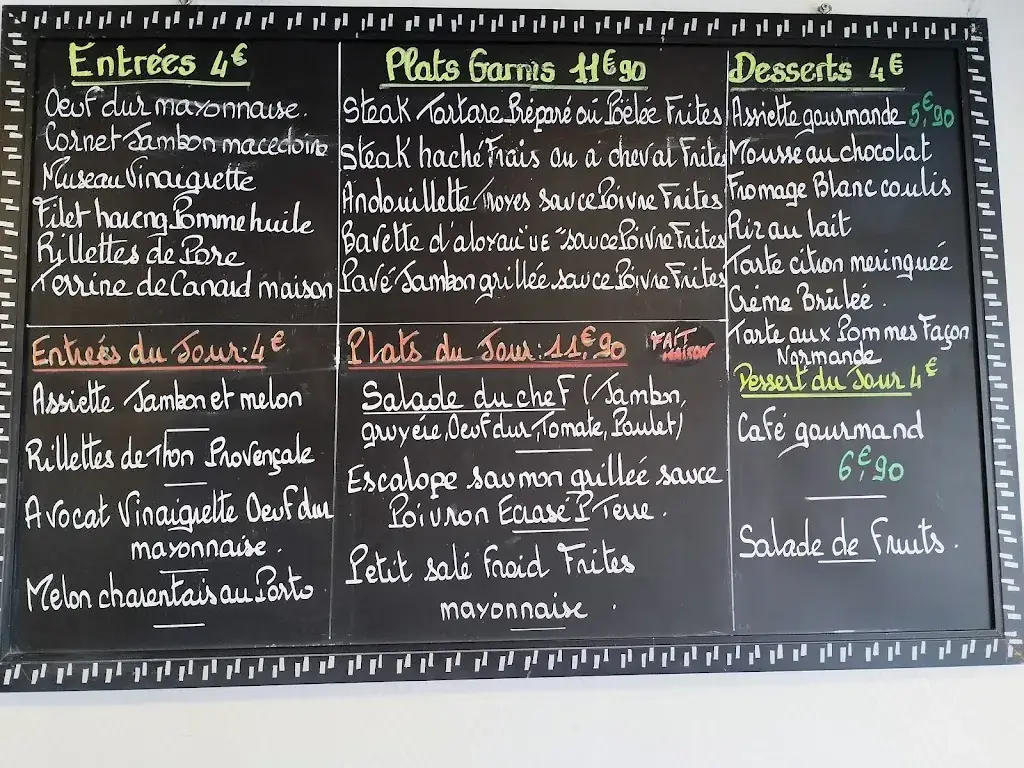 Entrées 4€
Oeuf dur mayonnaise.
Cornet Jambon macedoine
Museau Vinaigrette
Filet hareng Pomme huile
Rillettes de Porc
Terrine de Canard maison
Entrées du Jour: 4€
Assiette Jambon et melon
Rillettes de Thon Provençale
Avocat Vinaigrette Oeuf dur
mayonnaise.
Melon charentais au Porto
Plats Garnis 11€90
Steak Tartare Préparé ou Poêlée Frites
Steak haché Frais ou a cheval Frites
Andouillette Troyes sauce Poivre Frites
Bavette d'aloyau "UE" sauce Poivre Frites
Pavé Jambon grillée sauce Poivre Frites
Plats du Jour: 11€,90
FAIT
MAISON
Salade du chef (Jambon,
gruyère, Oeuf dur, Tomate, Poulet)
Escalope saumon grilleé sauce
Poivron Ecrasé P Terre.
Petit salé Froid Frites
mayonnaise.
Desserts 4€
Assiette gourmande 5,€90
Mousse au chocolat
Fromage Blanc coulis
Riz au lait
Tarte citron meringuée
Crème Brûleé.
Tarte aux Pommes Façon
Normande
Dessert du Jour 4€
Café gourmand
6€,90
Salade de Fruits.